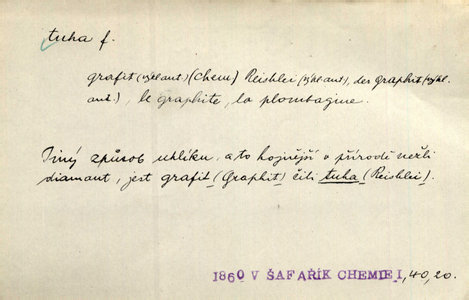 tuha f.
grafit (výkl ant) (chem) Reisblei (výkl ant), der graphit (výkl.
ant.), le graphite, la plombagine.
Jiný způsob uhlíku, a to hojnější v přírodě nežli
diamant, jest grafit (Graphit) čili tuha (Reisblei).
1860 V ŠAFAŘÍK CHEMIE I, 40, 20.